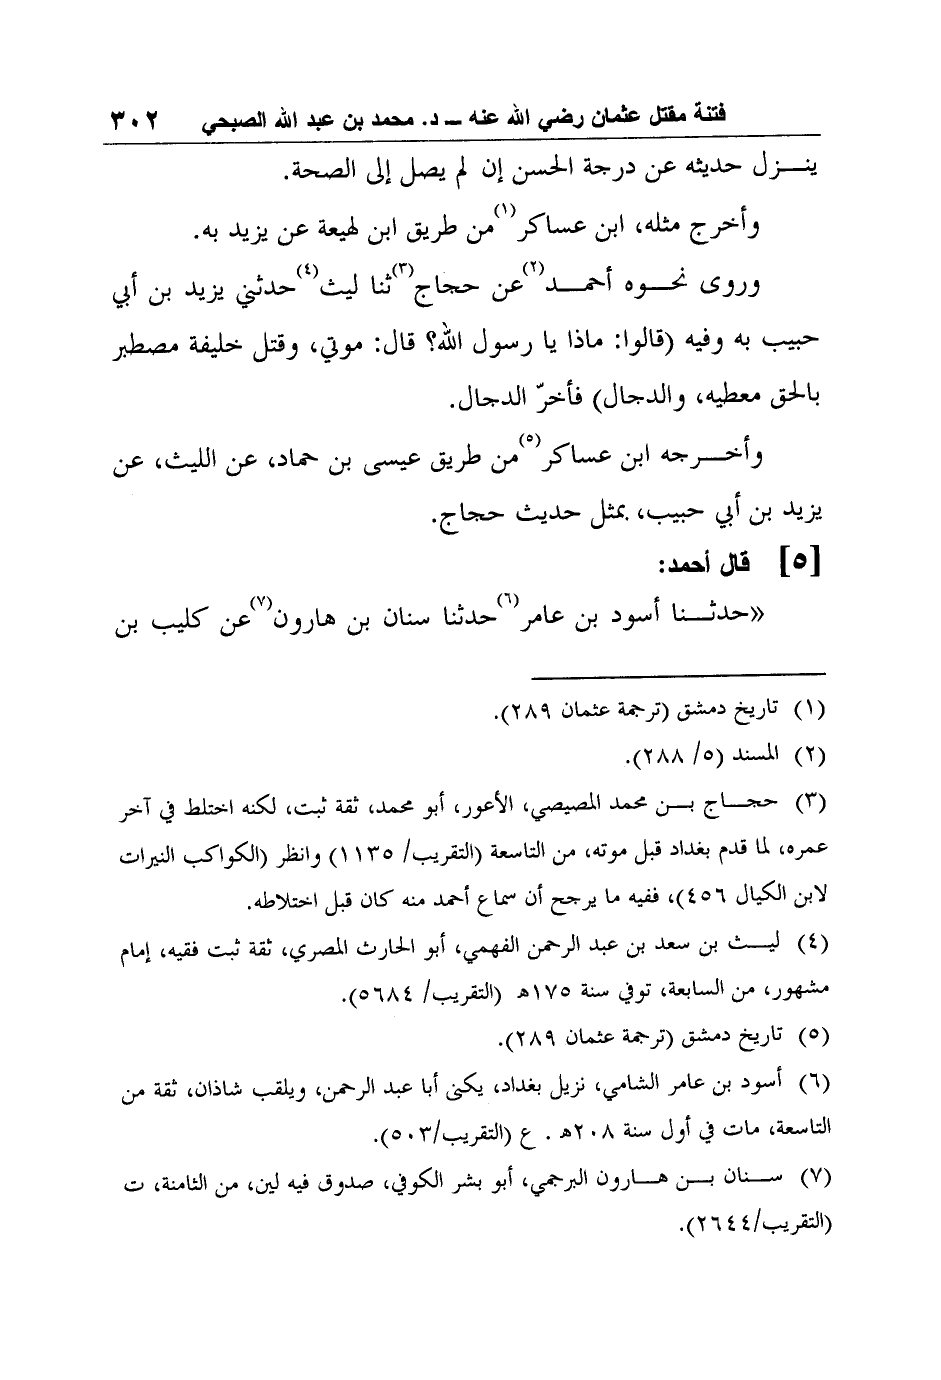 فتنة مقتل عثمان رضي الله عنه ــ د. محمد بن عبد الله الصبحي ٣٠٢
ينــزل حديثه عن درجة الحسن إن لم يصل إلى الصحة.
وأخرج مثله، ابن عساكر(١)من طريق ابن لهيعة عن يزيد به.
وروى نحــوه أحمــد(٢)عن حجاج(٣)ثنا ليث(٤)حدثني يزيد بن أبي
حبيب به وفيه (قالوا: ماذا يا رسول الله؟ قال: موتي، وقتل خليفة مصطبر
بالحق معطيه، والدجال) فأخرّ الدجال.
وأخــرجه ابن عساكر(٥)من طريق عيسى بن حماد، عن الليث، عن
يزيد بن أبي حبيب، بمثل حديث حجاج.
[٥] قال أحمد:
«حدثــنا أسود بن عامر(٦)حدثنا سنان بن هارون(٧)عن كليب بن
(١) تاريخ دمشق (ترجمة عثمان ٢٨٩).
(٢) المسند (٥/ ٢٨٨).
(٣) حجــاج بــن محمد المصيصي، الأعور، أبو محمد، ثقة ثبت، لكنه اختلط في آخر
عمره، لما قدم بغداد قبل موته، من التاسعة (التقريب/ ١١٣٥) وانظر (الكواكب النيرات
لابن الكيال ٤٥٦)، ففيه ما يرجح أن سماع أحمد منه كان قبل اختلاطه.
(٤) ليــث بن سعد بن عبد الرحمن الفهمي، أبو الحارث المصري، ثقة ثبت فقيه، إمام
مشهور، من السابعة، توفي سنة ١٧٥هـ (التقريب/ ٥٦٨٤).
(٥) تاريخ دمشق (ترجمة عثمان ٢٨٩).
(٦) أسود بن عامر الشامي، نزيل بغداد، يكنى أبا عبد الرحمن، ويلقب شاذان، ثقة من
التاسعة، مات في أول سنة ٢٠٨هـ . ع (التقريب/٥٠٣).
(٧) ســنان بــن هــارون البرجمي، أبو بشر الكوفي، صدوق فيه لين، من الثامنة، ت
(التقريب/٢٦٤٤).